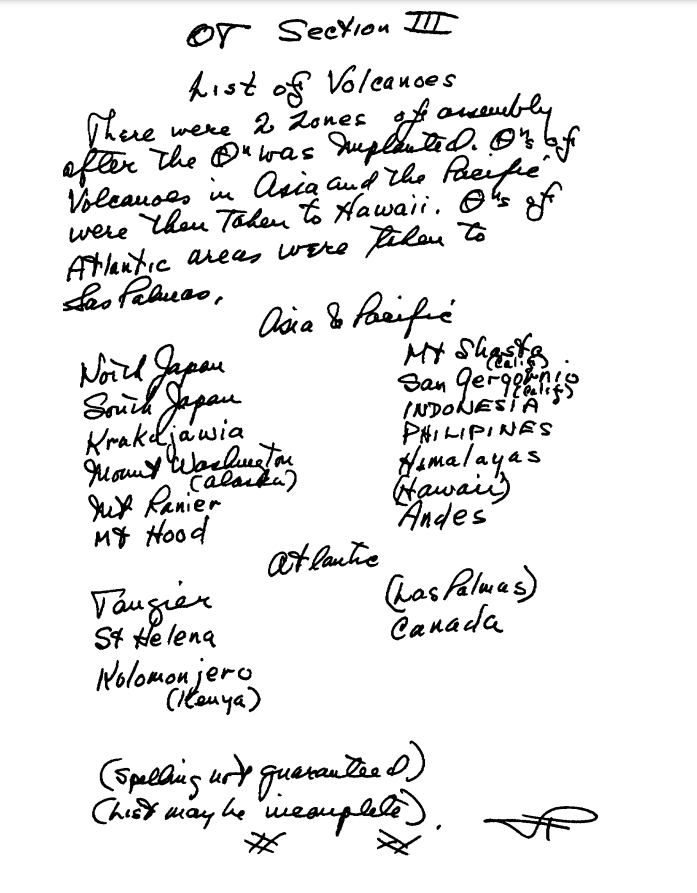 OT Section III
List of Volcanoes
There were 2 zones of assembly
after the Θ" was Implanted. Θ"s of
Volcanoes in Asia and the Pacific
were then Taken to Hawaii. Θ"s of
Atlantic areas were taken to
Las Palmas.
Asia & Pacific
North Japan
South Japan
Krakajawia
Mount Washington
(Alaska)
Mt Ranier
Mt Hood
Mt Shasta
(Calif)
San Gergornio
(Calif)
INDONESIA
PHILIPINES
Himalayas
(Hawaii)
Andes
Atlantic
Tangier
St Helena
Kolomonjero
(Kenya)
(Las Palmas)
Canada
(Spelling not guaranteed)
(List may be incomplete).